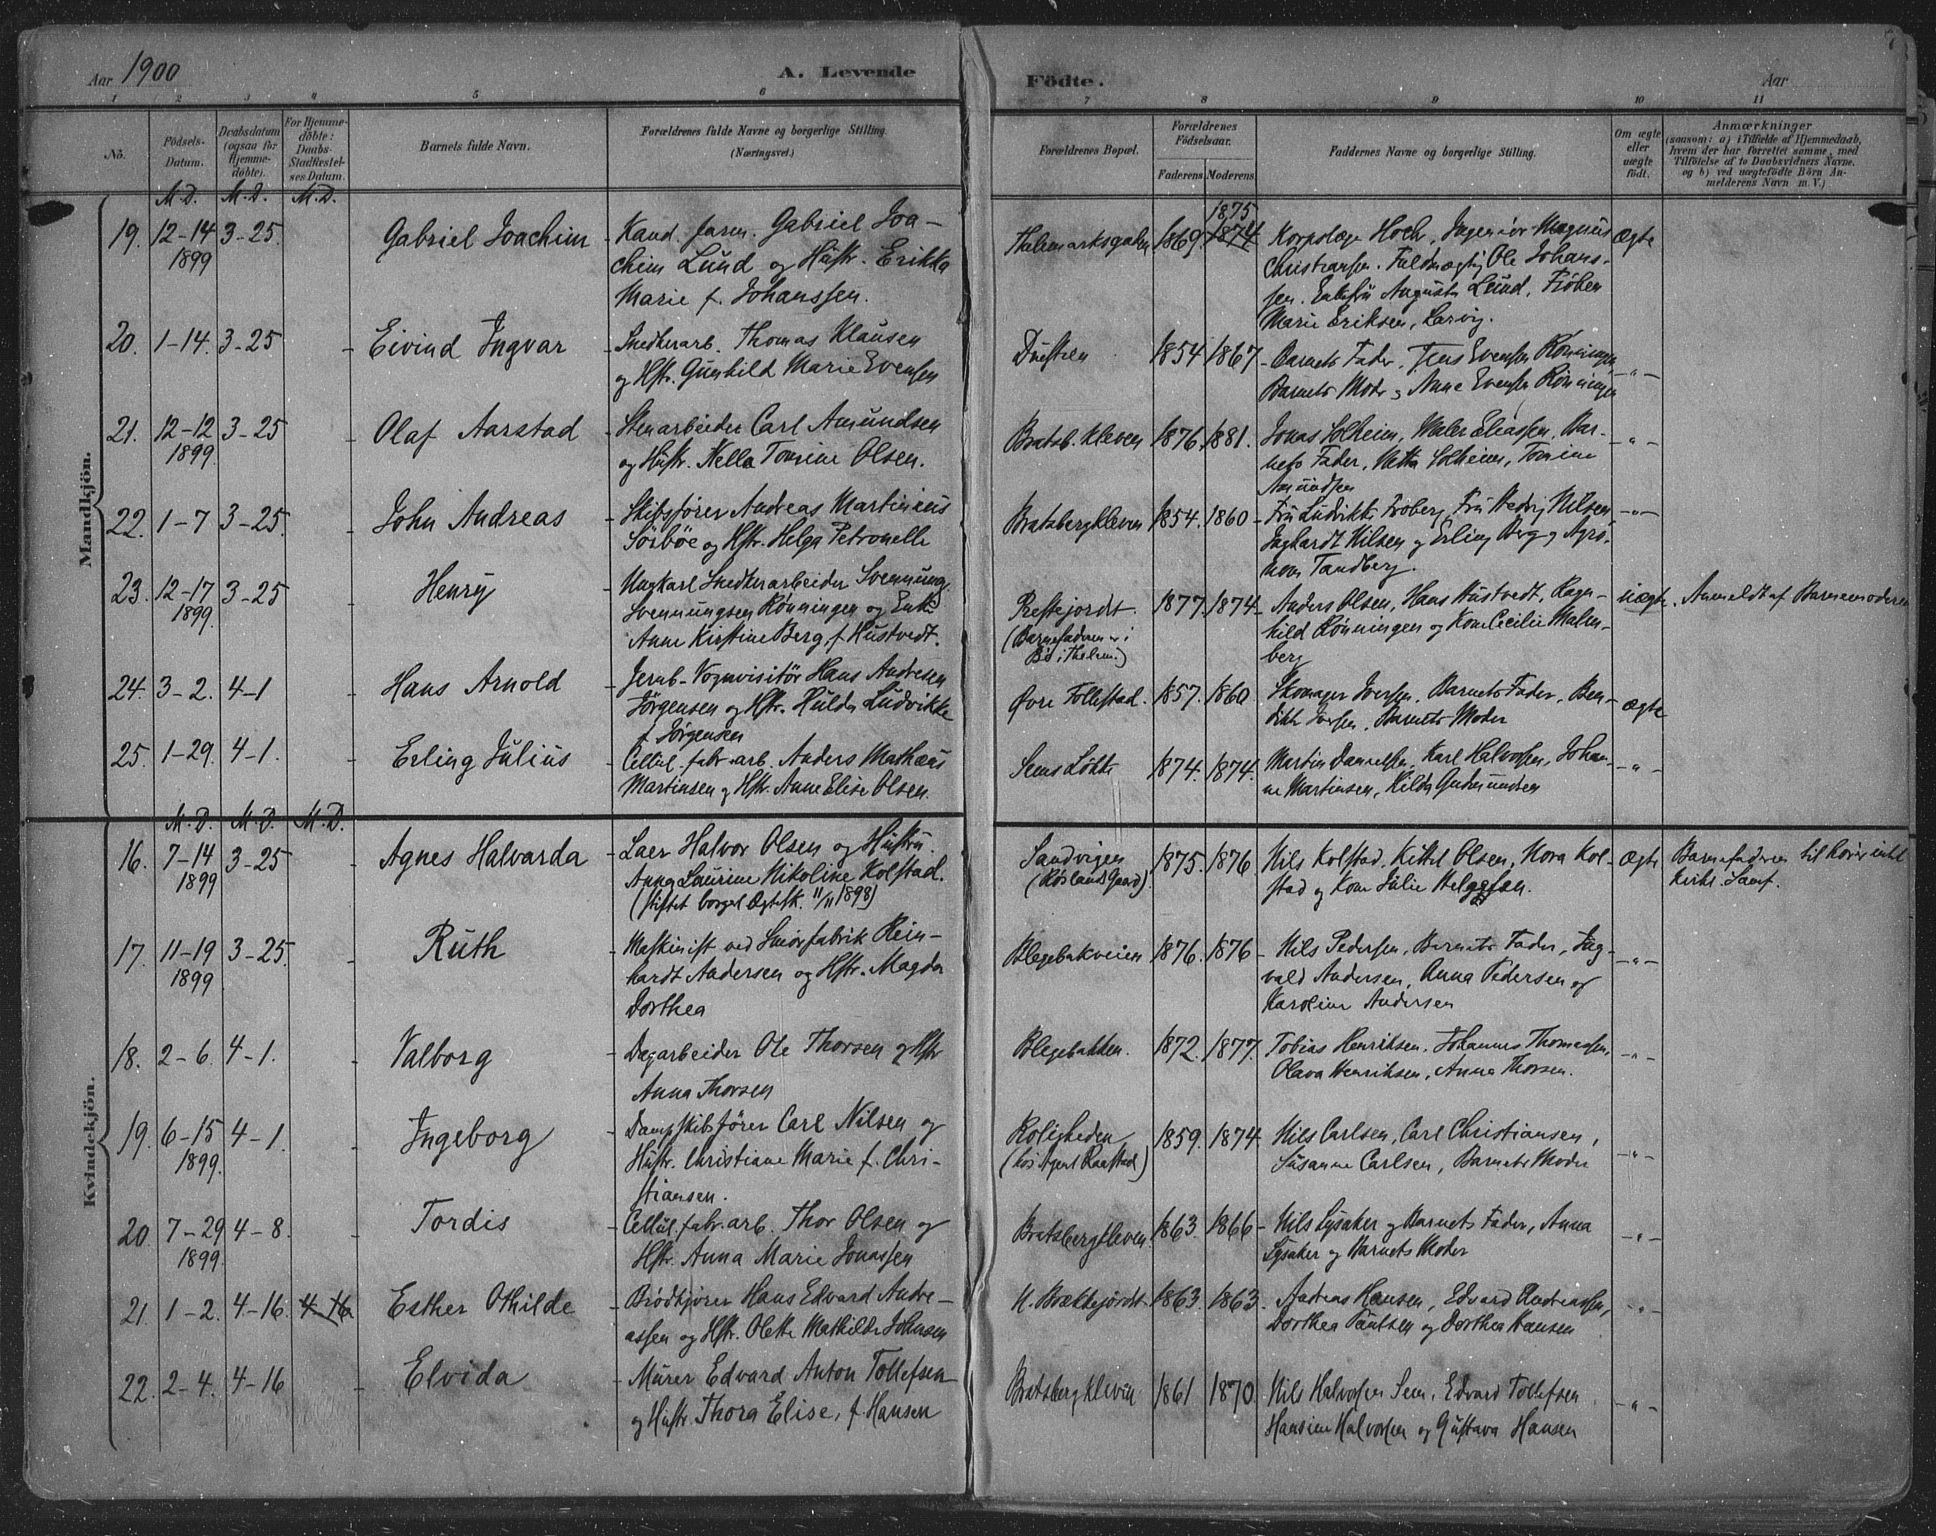 Aar 1900
A. Levende
Födte.
Aar
7
1 2 3 4 5 6 7 8 9 10 11
No.
Födsels-Datum.
Daabsdatum (ogsaa for Hjemme-döbte).
For Hjemme-döbte: Daabs-Stadfæstel-ses Datum.
Barnets fulde Navn.
Forældrenes fulde Navne og borgerlige Stilling.
(Næringsvei.)
Forældrenes Bopæl.
Forældrenes Födselsaar.
Faderens. Moderens.
Faddernes Navne og borgerlige Stilling.
Om ægte eller uægte födt.
Anmærkninger
(saasom: a) i Tilfælde af Hjemmedaab, hvem der har forrettet samme, med Tilföielse af to Daabsvidners Navne, og b) ved uægtefödte Börn An-melderens Navn m. V.)
M. D. M. D. M. D.
Mandkjön.
19. 12-14 1899 3-25. Gabriel Joachim
Kand. farm. Gabriel Joa-
chim Lund og Hustr. Erikka
Marie f. Johanssen.
1869. 1875 1874
Ingeniør Magnus
Christiansen. Fuldmægtig Ole Johans-
sen. Augusta Lund, Frøken
Marie Eriksen, Larvig.
Ægte
20. 1-14. 3-25 - Eivind Ingvar
- Snedkerarb. Thomas Klausen
og Hstr. Gunhild Marie Evensen
1854 1867.
- Barnets Fader, Jens Evensen Rønningen
Barnets Moder og Anne Evensen Rønningen
-"-
21. 12-12 1899. 3-25 - Olaf Aarstad
- Stenarbeider Carl Amundsen
og Hustr. Nella Tomine Olsen.
Bratsb. kleven 1876. 1881.
Jonas Solheim, Maler Eliassen, Bar-
nets Fader, Netta Solheim, Tomine
Amundsen
-"-
22. 1-7 3-25. - John Andreas
- Skibsfører Andreas Martinius
Sósbøe og Hstr. Helga Petronelle
Bratsbergkleven 1854. 1860
- Fru Ludvikke Froberg, Fru Hedvig Nilsen,
Inghardt Nilsen og Erling Berg og Agro-
nom Tandberg.
-"-
23. 12-17 1899. 3-25 Henry
- Ungkarl Snedkerarbeider Svennung
Svennungsen Rønningen og Enke
Anne Kirstine Berg, f. Hustvedt.
Prestejordet.
(Barnefaderen er i
Bø i Thelem.)
1877. 1874
- Anders Olsen, Hans Hustvedt, Ragn-
hild Rønningen og Kone Cecilie Malm-
berg
uægte. Anmeldt af Barnemoderen
24. 3-2. 4-1 - Hans Arnold
- Jernb. Vognvisitør Hans Andresen
Jørgensen og Hstr. Hulda Ludvikke
f. Jørgensen
Øvre Follestad. 1857. 1860
Skomager Iversen, Barnets Fader, Ben-
dikte Iversen, Barnets Moder
ægte
25. 1-29. 4-1. - Erling Julius
- Cellul. fabr. arb. Anders Mathæus
Martinsen og Hstr. Anne Elise Olsen.
Sems Løkke 1874. 1874.
Martin Danielsen, Karl Halvorsen, Johan-
ne Martinsen, Hilda Gudmundsen
-"-
M. D. M. D. M. D.
Kvindekjön.
16. 7-14 1899 3-25 - Agnes Halvarda
- Laer Halvor Olsen og Hustru
Anna Laurine Nikoline Kolstad.
(stiftet borgel. Ægtesk. 11/11 1898)
Sandvigen
(Røslands Gaard).
1875. 1876
- Nils Kolstad, Kittil Olsen, Nora Kol-
stad og Kone Julie Helgesen.
Ægte Barnefaderen til hører
kirke. Samf.
17. 11-19 1899 3-25. - Ruth
- Maskinist ved Smørfabrik Rein-
hardt Andersen og Hstr. Magda
Dorthea
Blegebakveien 1876. 1876
- Nils Pedersen, Barnets Fader, Ing-
vald Andersen, Anna Pedersen og
Karoline Andersen
-"-
18. 2-6. 4-1. - Valborg
- Dagarbeider Ole Thorsen og Hstr
Anna Thorsen
Blegebakken. 1872. 1877.
Tobias Henriksen, Johannes Thomassen,
Olava Henriksen, Anna Thorsen.
-"-
19. 6-15 1899. 4-1. - Ingeborg
- Dampskibsfører Carl Nilsen og
Hustr. Christiane Marie f. Chri-
stiansen.
Roligheden
(hos Agent Raastad)
1859. 1874.
- Nils Carlsen, Carl Christiansen,
Susanne Carlsen, Barnets Moder
-"-
20 7-29 1899. 4-8. - Tordis
- Cellul. fabr. arb. Thor Olsen og
Hstr. Anna Marie Jonassen
Bratsbergkleven. 1863. 1866
- Nils Lysaker og Barnets Fader, Anna
Lysaker og Barnets Moder
-"-
21. 1-2. 4-16. 4-16 Esther Othilde
- Brødkjører Hans Edvard Andre-
assen og Hstr. Olette Mathilde Johnsen
N. Brækkejordet 1863. 1863.
- Andreas Hansen, Edvard Andreassen,
Dorthea Paulsen og Dorthea Hansen
-"-
22. 2-4. 4-16 - Elvida
- Murer Edvard Anton Tollefsen
og Hustr. Thora Elise, f. Hansen
Bratsbergkleven 1861 1870.
- Nils Halvorsen Sem, Edvard Tollefsen
Hansine Halvorsen og Gustava Hansen
-"-